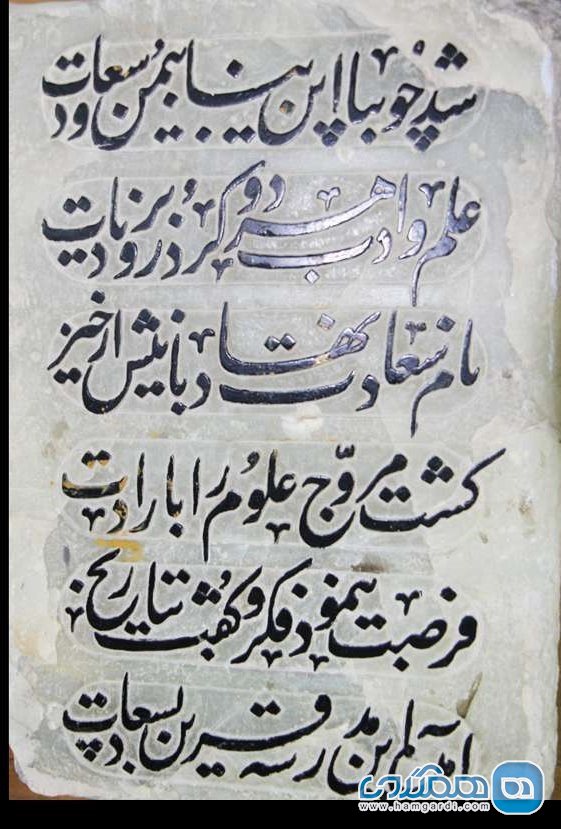 شد چو بپا این بنا بیمن و سعادت
علم و ادب هر دو کرد رو بزیادت
نام سعادت نهاد بانیش از خیر
گشت مروّج علوم را بارادت
فرصت بنمود فکر و گفت بتاریخ
آمد این مدرسه قرین بسعادت
همگردی
www.hamgardi.com